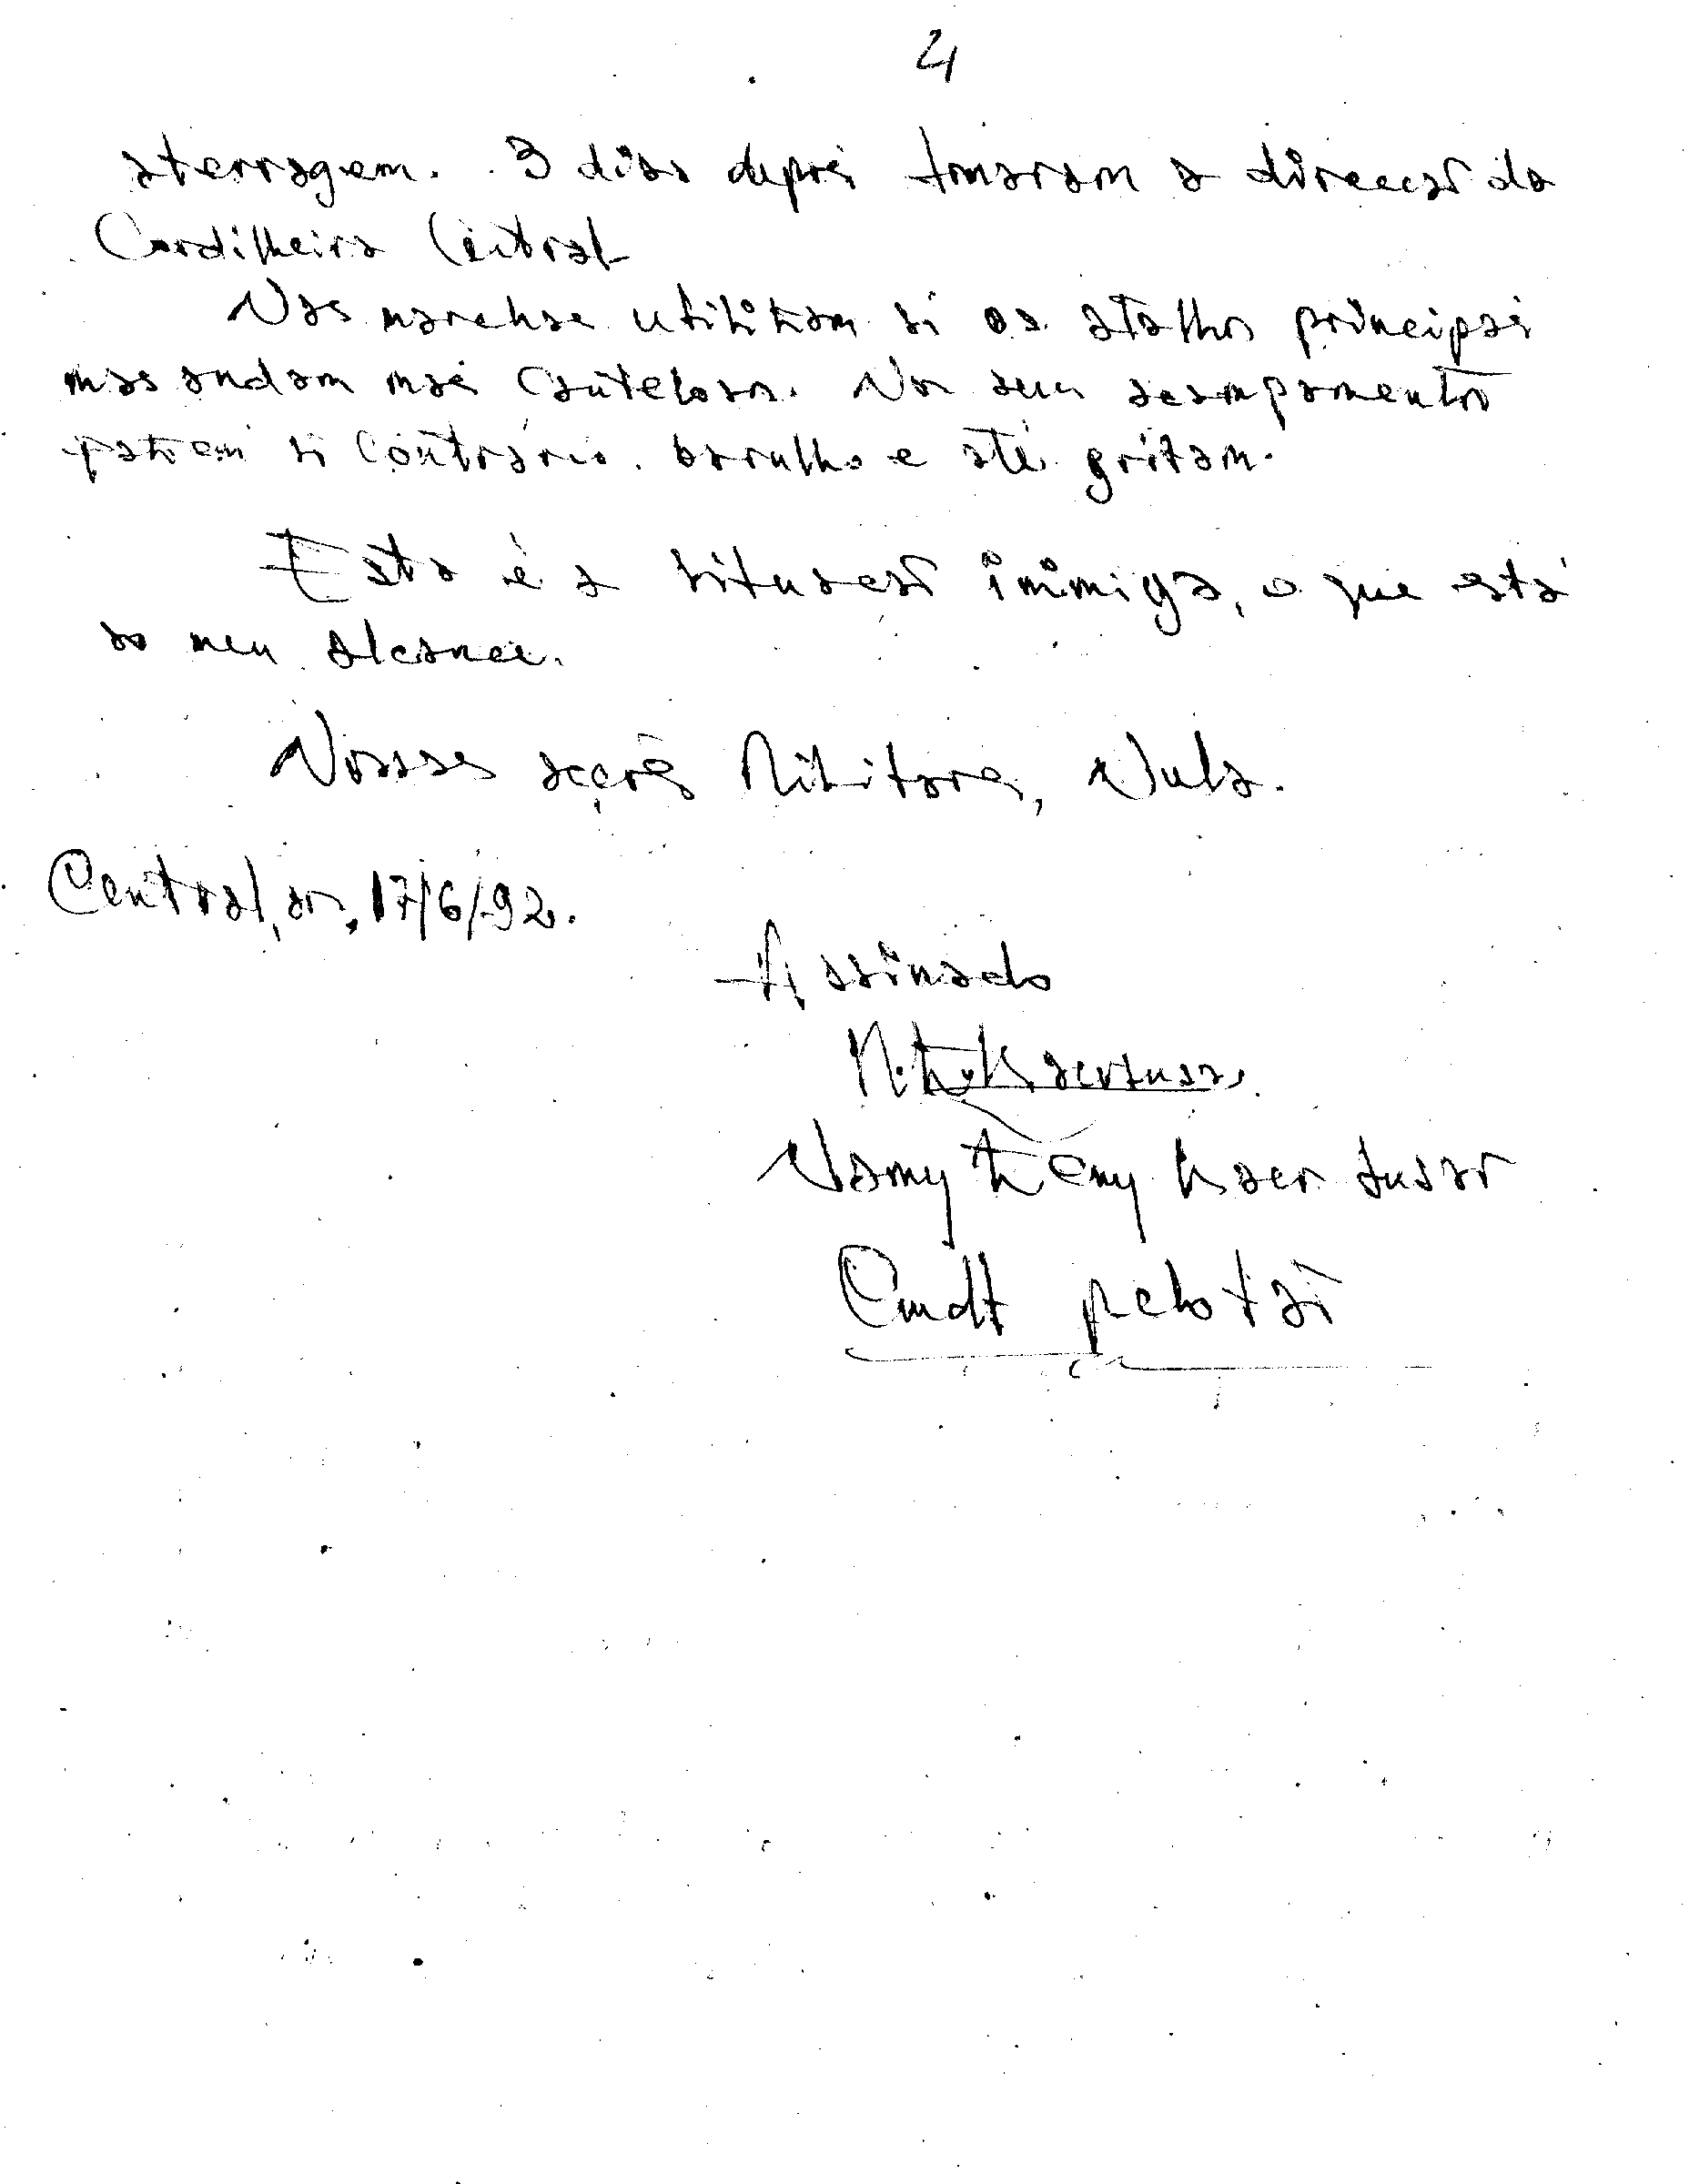 4
aterragem. 3 dias depois tomaram a direcção da
Cordilheira Central
Nas marchas utilizam só os atalhos principais
mas andam mais cautelosos. Nos seus acampamentos
fazem só contrário. barulho e até gritam.
Esta é a situação inimiga, o que está
ao meu alcance.
Nossas acções Militares, Nula.
Central, aos, 17/6/92.
Assinado
Namy
Cmdt pelotão